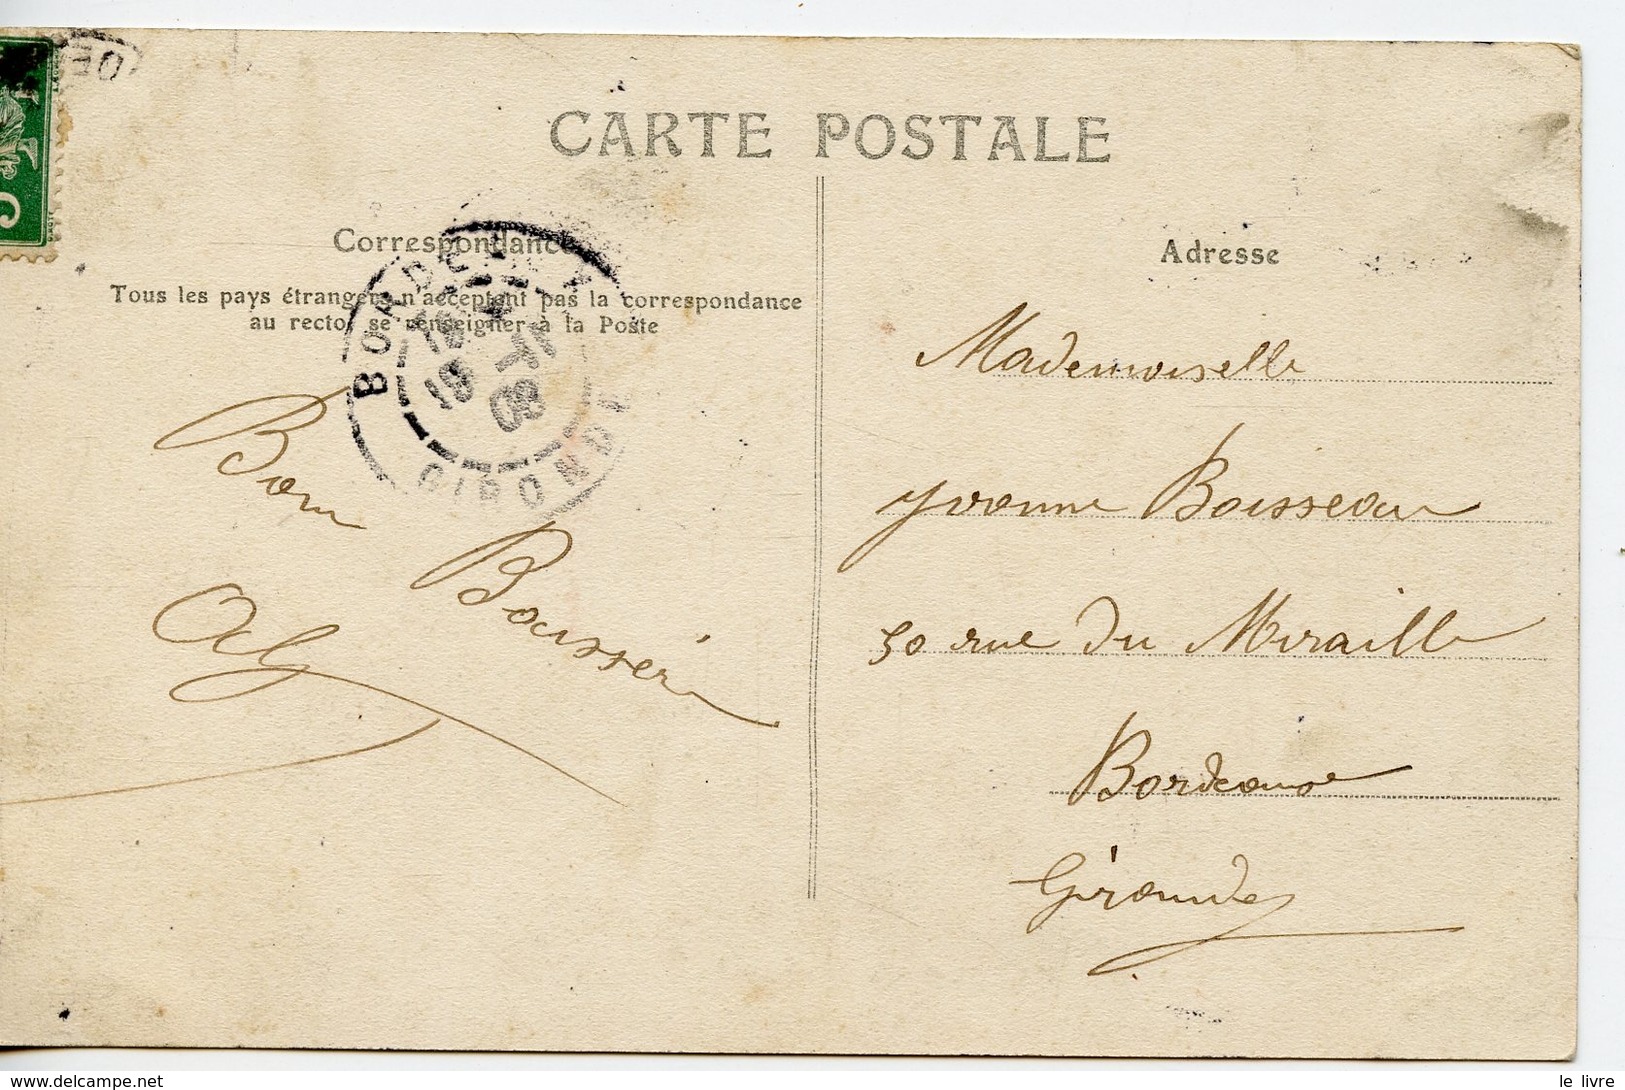 CARTE POSTALE
Correspondance
Tous les pays étrangers n'acceptent pas la correspondance
au recto, se renseigner à la Poste
BORDEAUX
GIRONDE
Bon Baisser
Adresse
Mademoiselle
Yvonne Boisseau
50 rue du Miraille
Bordeaux
Gironde
5
DE
le livre
www.delcampe.net